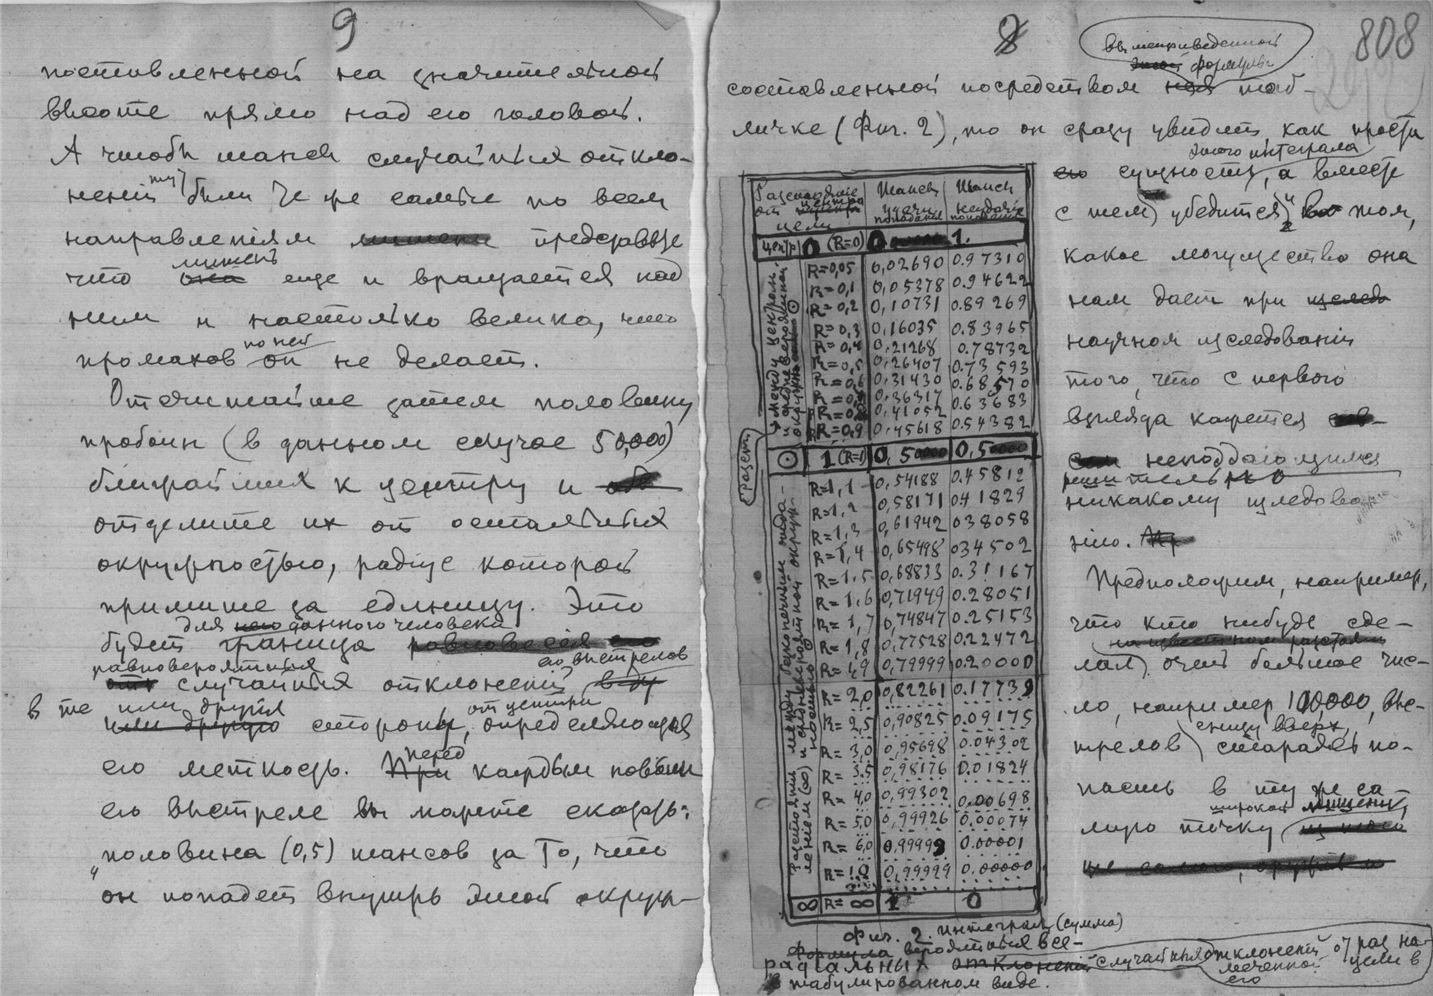 9
поставленной на значительной
высоте прямо над его головой.
А чтобы шансы случайных откло-
нений были те же самые по всем
направлениям представьте
что мишень еще и вращается над
ним и настолько велика, что
промахов по ней он не делает.
Отсчитайте затем половину
пробоин (в данном случае 50,000)
ближайших к центру и
отделите их от остальных
окружностью, радіус которой
примите за единицу. Это
будет для данного человека граница
равновероятных случайных отклонений его выстрелов
в те или другія стороны от центра, определяющая
его меткость. Перед каждым новым
его выстреле вы можете сказать:
"половина (0,5) шансов за то, что
он попадет внутрь этой окруж-
8
808
вышеприведенной
формулы
составленной посредством таб-
личке (Фиг. 2), то он сразу увидит, как проста
сущность этого интеграла, а вместе
с тем убедится и в том,
какое могущество она
нам дает при
научном изследованіи
того, что с первого
взгляда кажется
неподдающимся
решительно
никакому изследова-
нію.
Предположим, например,
что кто нибудь сде-
лал очень большое чис-
ло, например 100,000, выс-
трелов снизу вверх, стараясь по-
пасть в ту же са-
мую точку широкой мишени,
Разстояніе от центра цели
Шансы удачи попаданія
Шансы неудачи попаданія
центр 0 (R=0) 0 1.
Между центром и равновероятной окружностью
R=0,05 0,02690 0.97310
R=0,1 0,05378 0.94622
R=0,2 0,10731 0.89269
R=0,3 0,16035 0.83965
R=0,4 0,21268 0.78732
R=0,5 0,26407 0.73593
R=0,6 0,31430 0.68570
R=0,7 0,36317 0.63683
R=0,8 0,41052
R=0,9 0,45618 0.54382
☉ 1 (R=1) 0,50000 0,50000
R=1,1 0,54188 0.45812
R=1,2 0,58171 0.41829
R=1,3 0,61942 0.38058
R=1,4 0,65498 0.34502
R=1,5 0,68833 0.31167
R=1,6 0,71949 0.28051
R=1,7 0,74847 0.25153
R=1,8 0,77528 0.22472
R=1,9 0,79999 0.20000
R=2,0 0,82261 0.17739
R=2,5 0,90825 0.09175
R=3,0 0,95698 0.04302
R=3,5 0,98176 0.01824
R=4,0 0,99302 0.00698
R=5,0 0,99926 0.00074
R=6,0 0,99999 0.00001
0,99999 0.00000
∞ R=∞ 1 0
Фиг. 2. Интеграл (сумма)
вероятія все-
радіальных случайных отклонений от рас на-
меченной цели в
его
в табулированном виде.